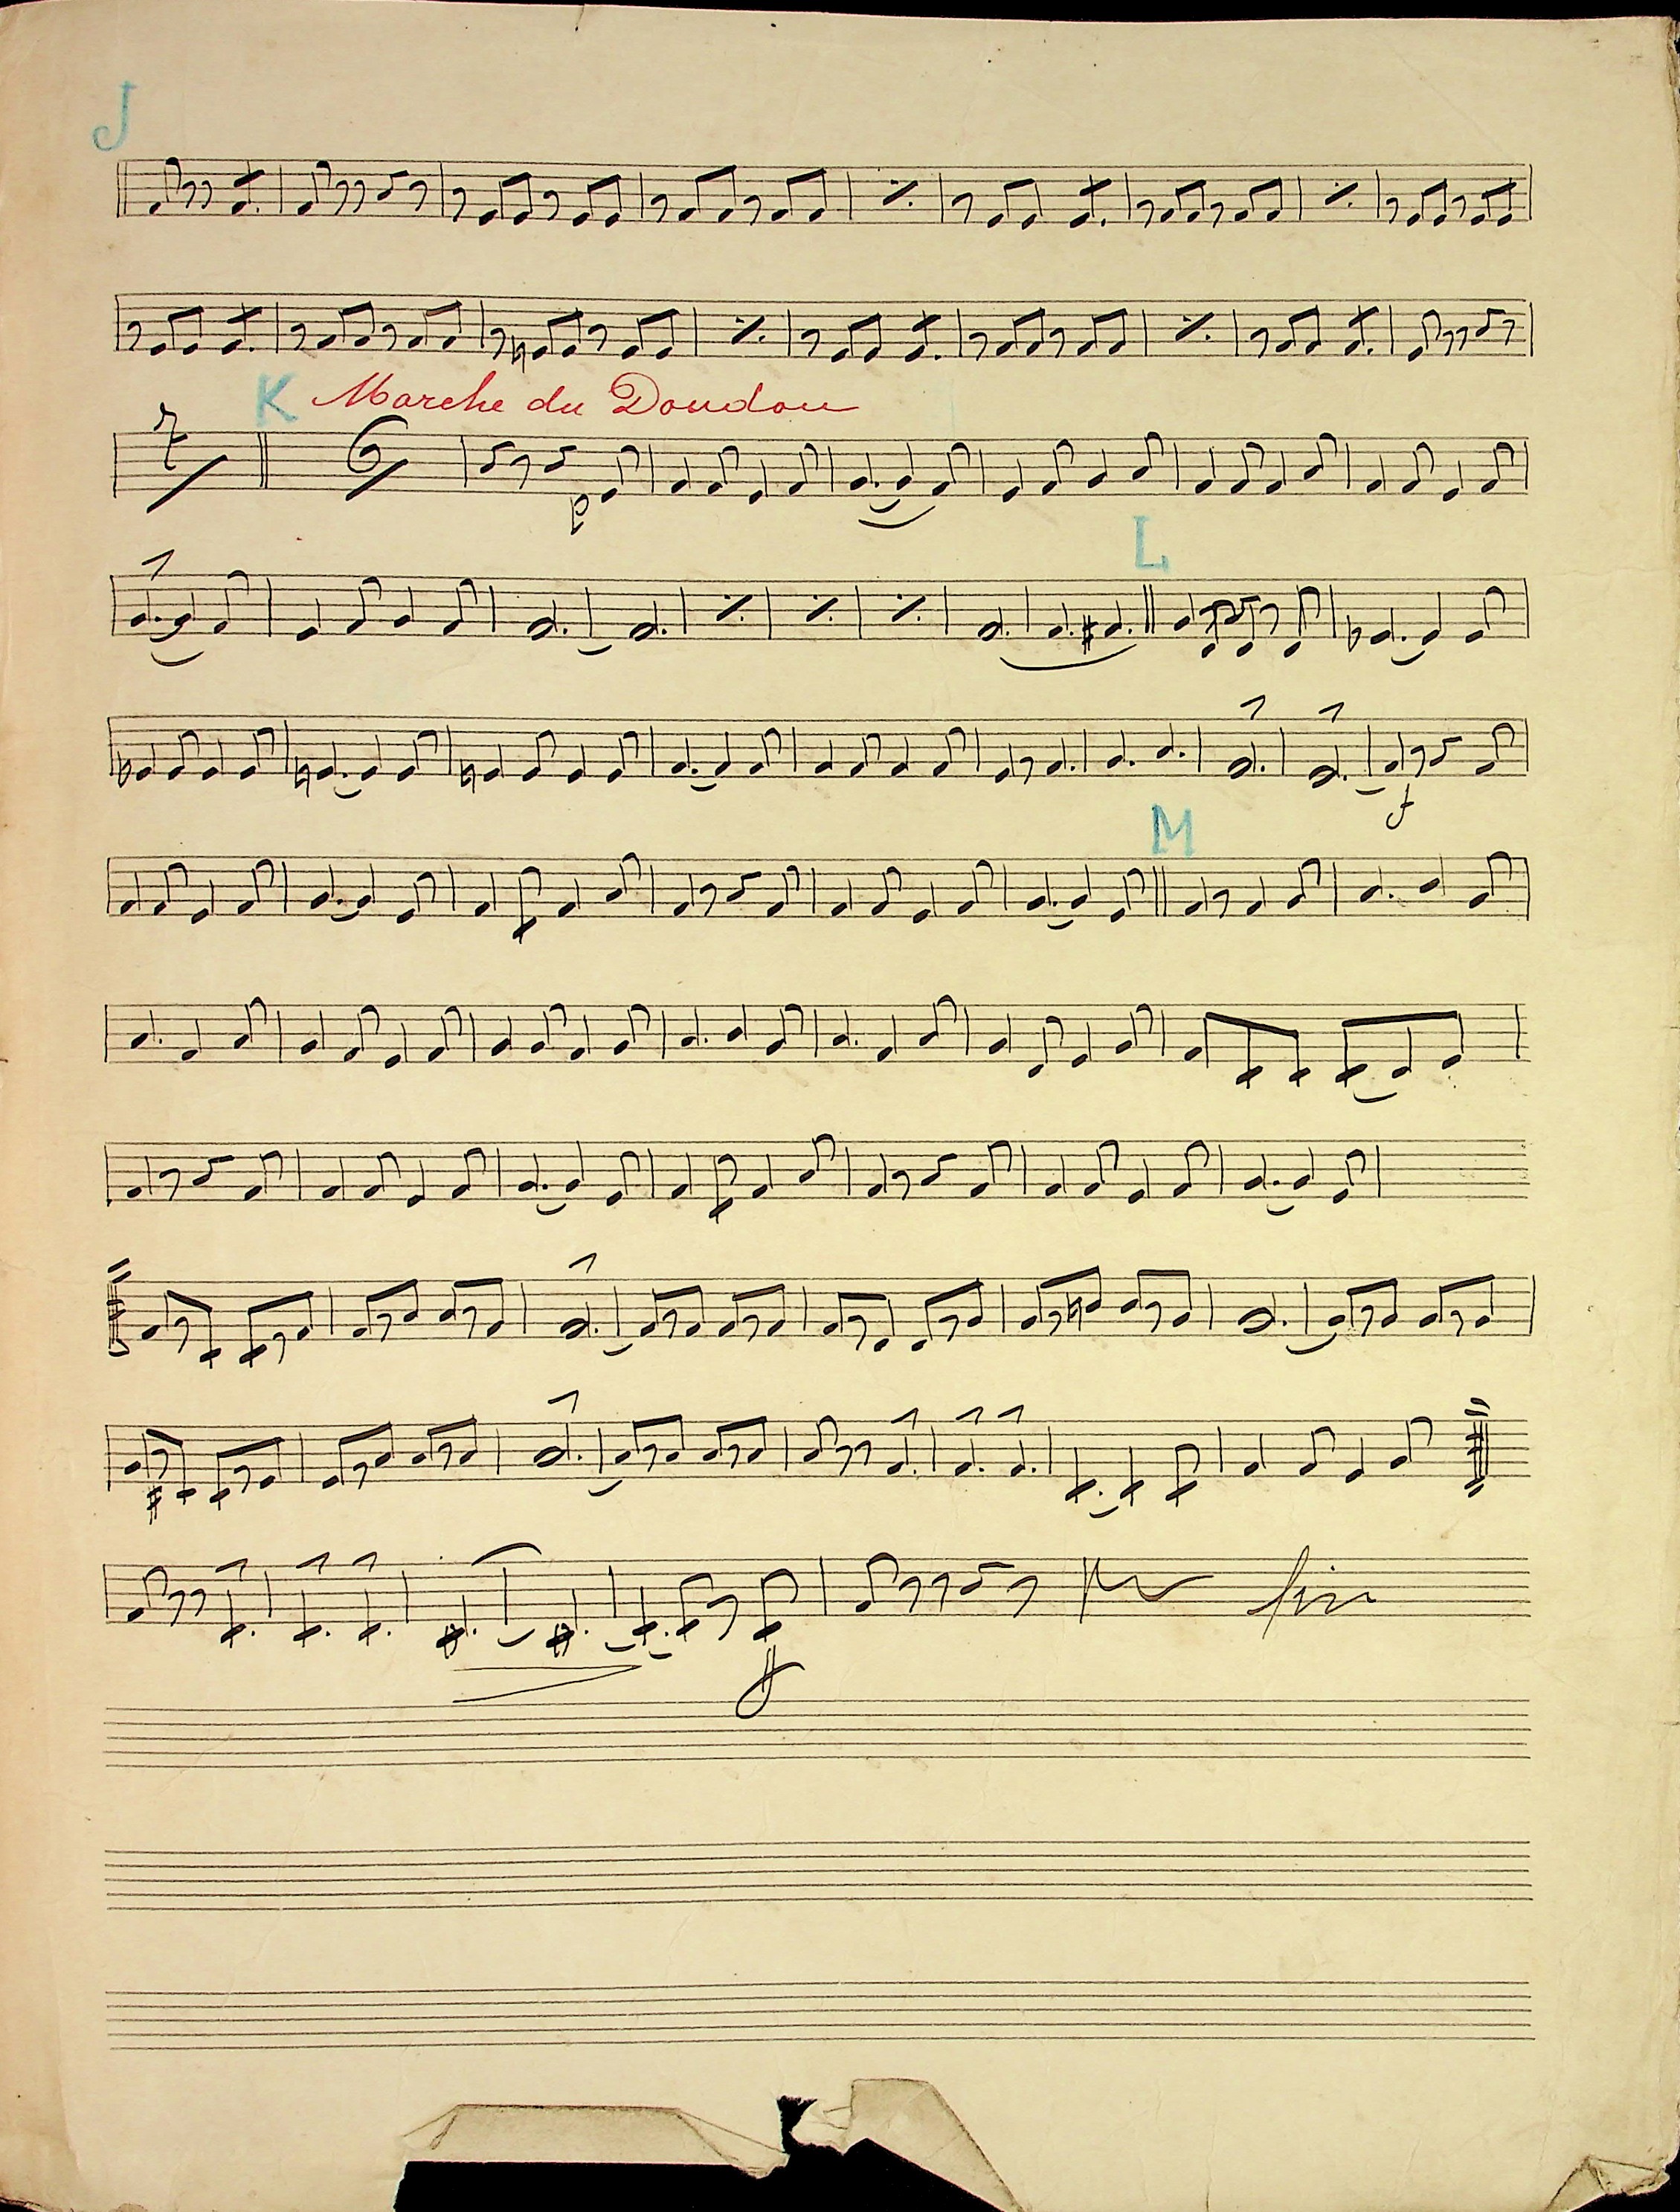 J
7
K Marche du Doudou
6
p
L
f
M
f
fin